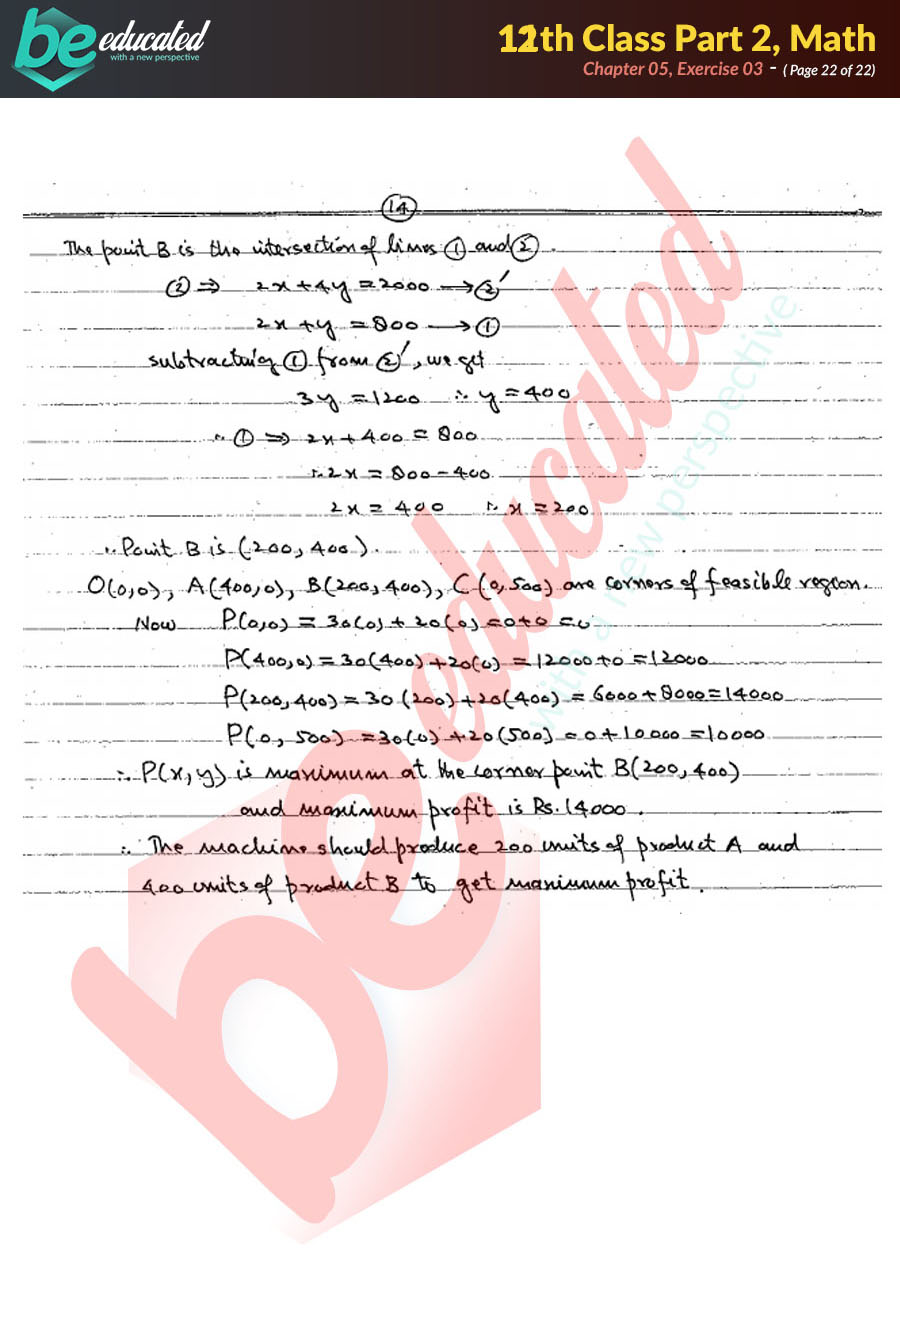 be educated
with a new perspective
12th Class Part 2, Math
Chapter 05, Exercise 03 - ( Page 22 of 22)
14
The point B is the intersection of lines ① and ②.
② ⇒ 2x + 4y = 2000 → ②′
2x + y = 800 → ①
subtracting ① from ②′, we get
3y = 1200 ∴ y = 400
∴ ① ⇒ 2x + 400 = 800
∴ 2x = 800 - 400
2x = 400 ∴ x = 200
∴ Point B is (200, 400).
O(0,0), A(400,0), B(200,400), C(0,500) are corners of feasible region.
Now P(0,0) = 30(0) + 20(0) = 0+0 = 0
P(400,0) = 30(400) + 20(0) = 12000 + 0 = 12000
P(200,400) = 30(200) + 20(400) = 6000 + 8000 = 14000
P(0, 500) = 30(0) + 20(500) = 0 + 10000 = 10000
∴ P(x, y) is maximum at the corner point B(200, 400)
and maximum profit is Rs. 14000.
∴ The machine should produce 200 units of product A and
400 units of product B to get maximum profit.
be educated
with a new perspective